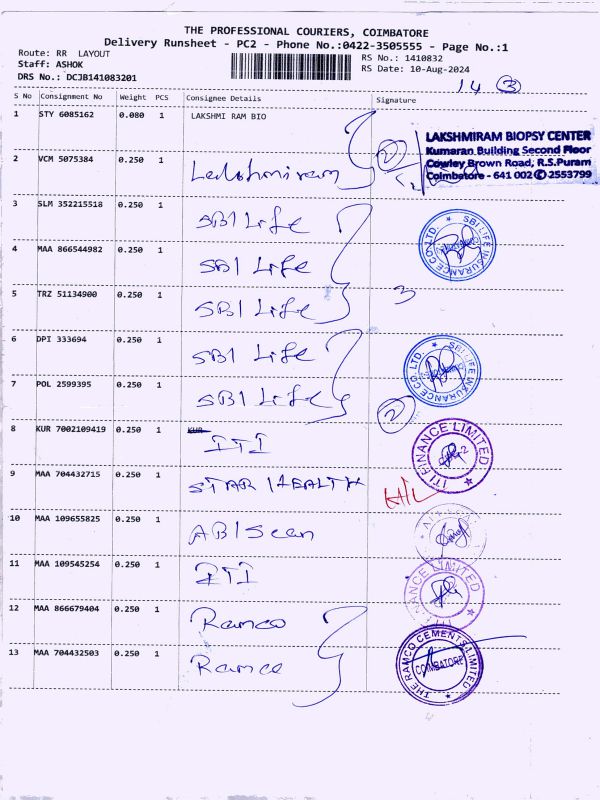 THE PROFESSIONAL COURIERS, COIMBATORE
Delivery Runsheet - PC2 - Phone No.:0422-3505555 - Page No.:1
Route: RR LAYOUT
Staff: ASHOK
DRS No.: DCJB141083201
RS No.: 1410832
RS Date: 10-Aug-2024
14 3
S No Consignment No Weight PCS Consignee Details Signature
1 STY 6085162 0.080 1 LAKSHMI RAM BIO
LAKSHMIRAM BIOPSY CENTER
Kumaran Building Second Floor
Cowley Brown Road, R.S.Puram
Coimbatore - 641 002 ✆ 2553799
2 VCM 5075384 0.250 1 Lakshmiram 2
3 SLM 352215518 0.250 1 SBI Life
SBI LIFE INSURANCE CO. LTD.
4 MAA 866544982 0.250 1 SBI Life
5 TRZ 51134900 0.250 1 SBI Life 3
6 DPI 333694 0.250 1 SBI Life
SBI LIFE INSURANCE CO. LTD.
7 POL 2599395 0.250 1 SBI Life 2
8 KUR 7002109419 0.250 1 KUR ITI
ITI FINANCE LIMITED
9 MAA 704432715 0.250 1 STAR HEALTH
10 MAA 109655825 0.250 1 ABI Scan
11 MAA 109545254 0.250 1 ITI
NANCE LIMITED
12 MAA 866679404 0.250 1 Ramco
13 MAA 704432503 0.250 1 Ramco
THE RAMCO CEMENTS LIMITED
COIMBATORE